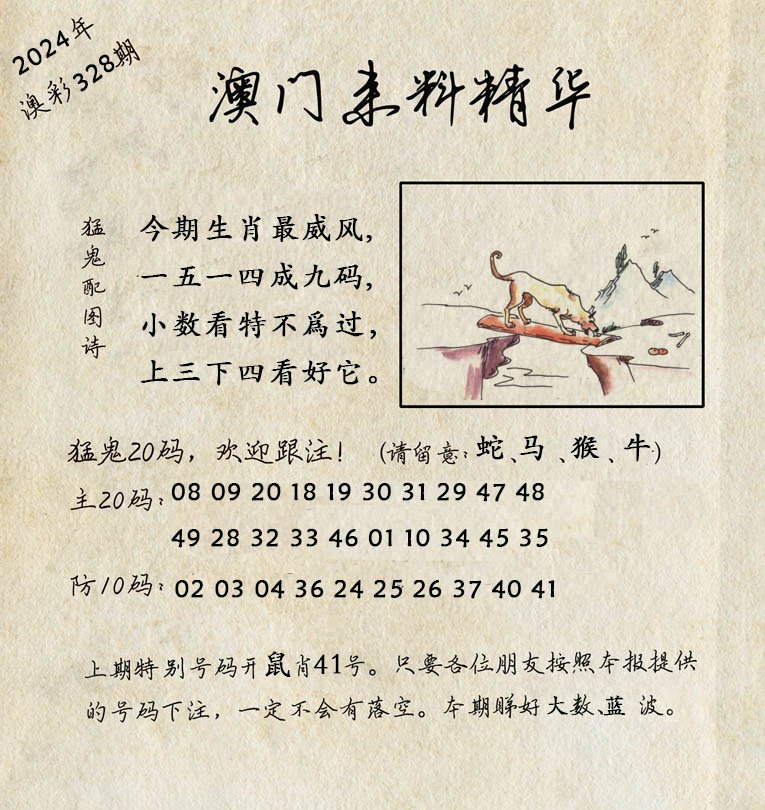 2024年
澳彩328期
澳门来料精华
猛鬼配图诗
今期生肖最威风,
一五一四成九码,
小数看特不爲过,
上三下四看好它。
猛鬼20码，欢迎跟注！（请留意：蛇、马、猴、牛）
主20码：08 09 20 18 19 30 31 29 47 48
49 28 32 33 46 01 10 34 45 35
防10码：02 03 04 36 24 25 26 37 40 41
上期特别号码开鼠肖41号。只要各位朋友按照本报提供
的号码下注，一定不会有落空。本期睇好大数、蓝 波。